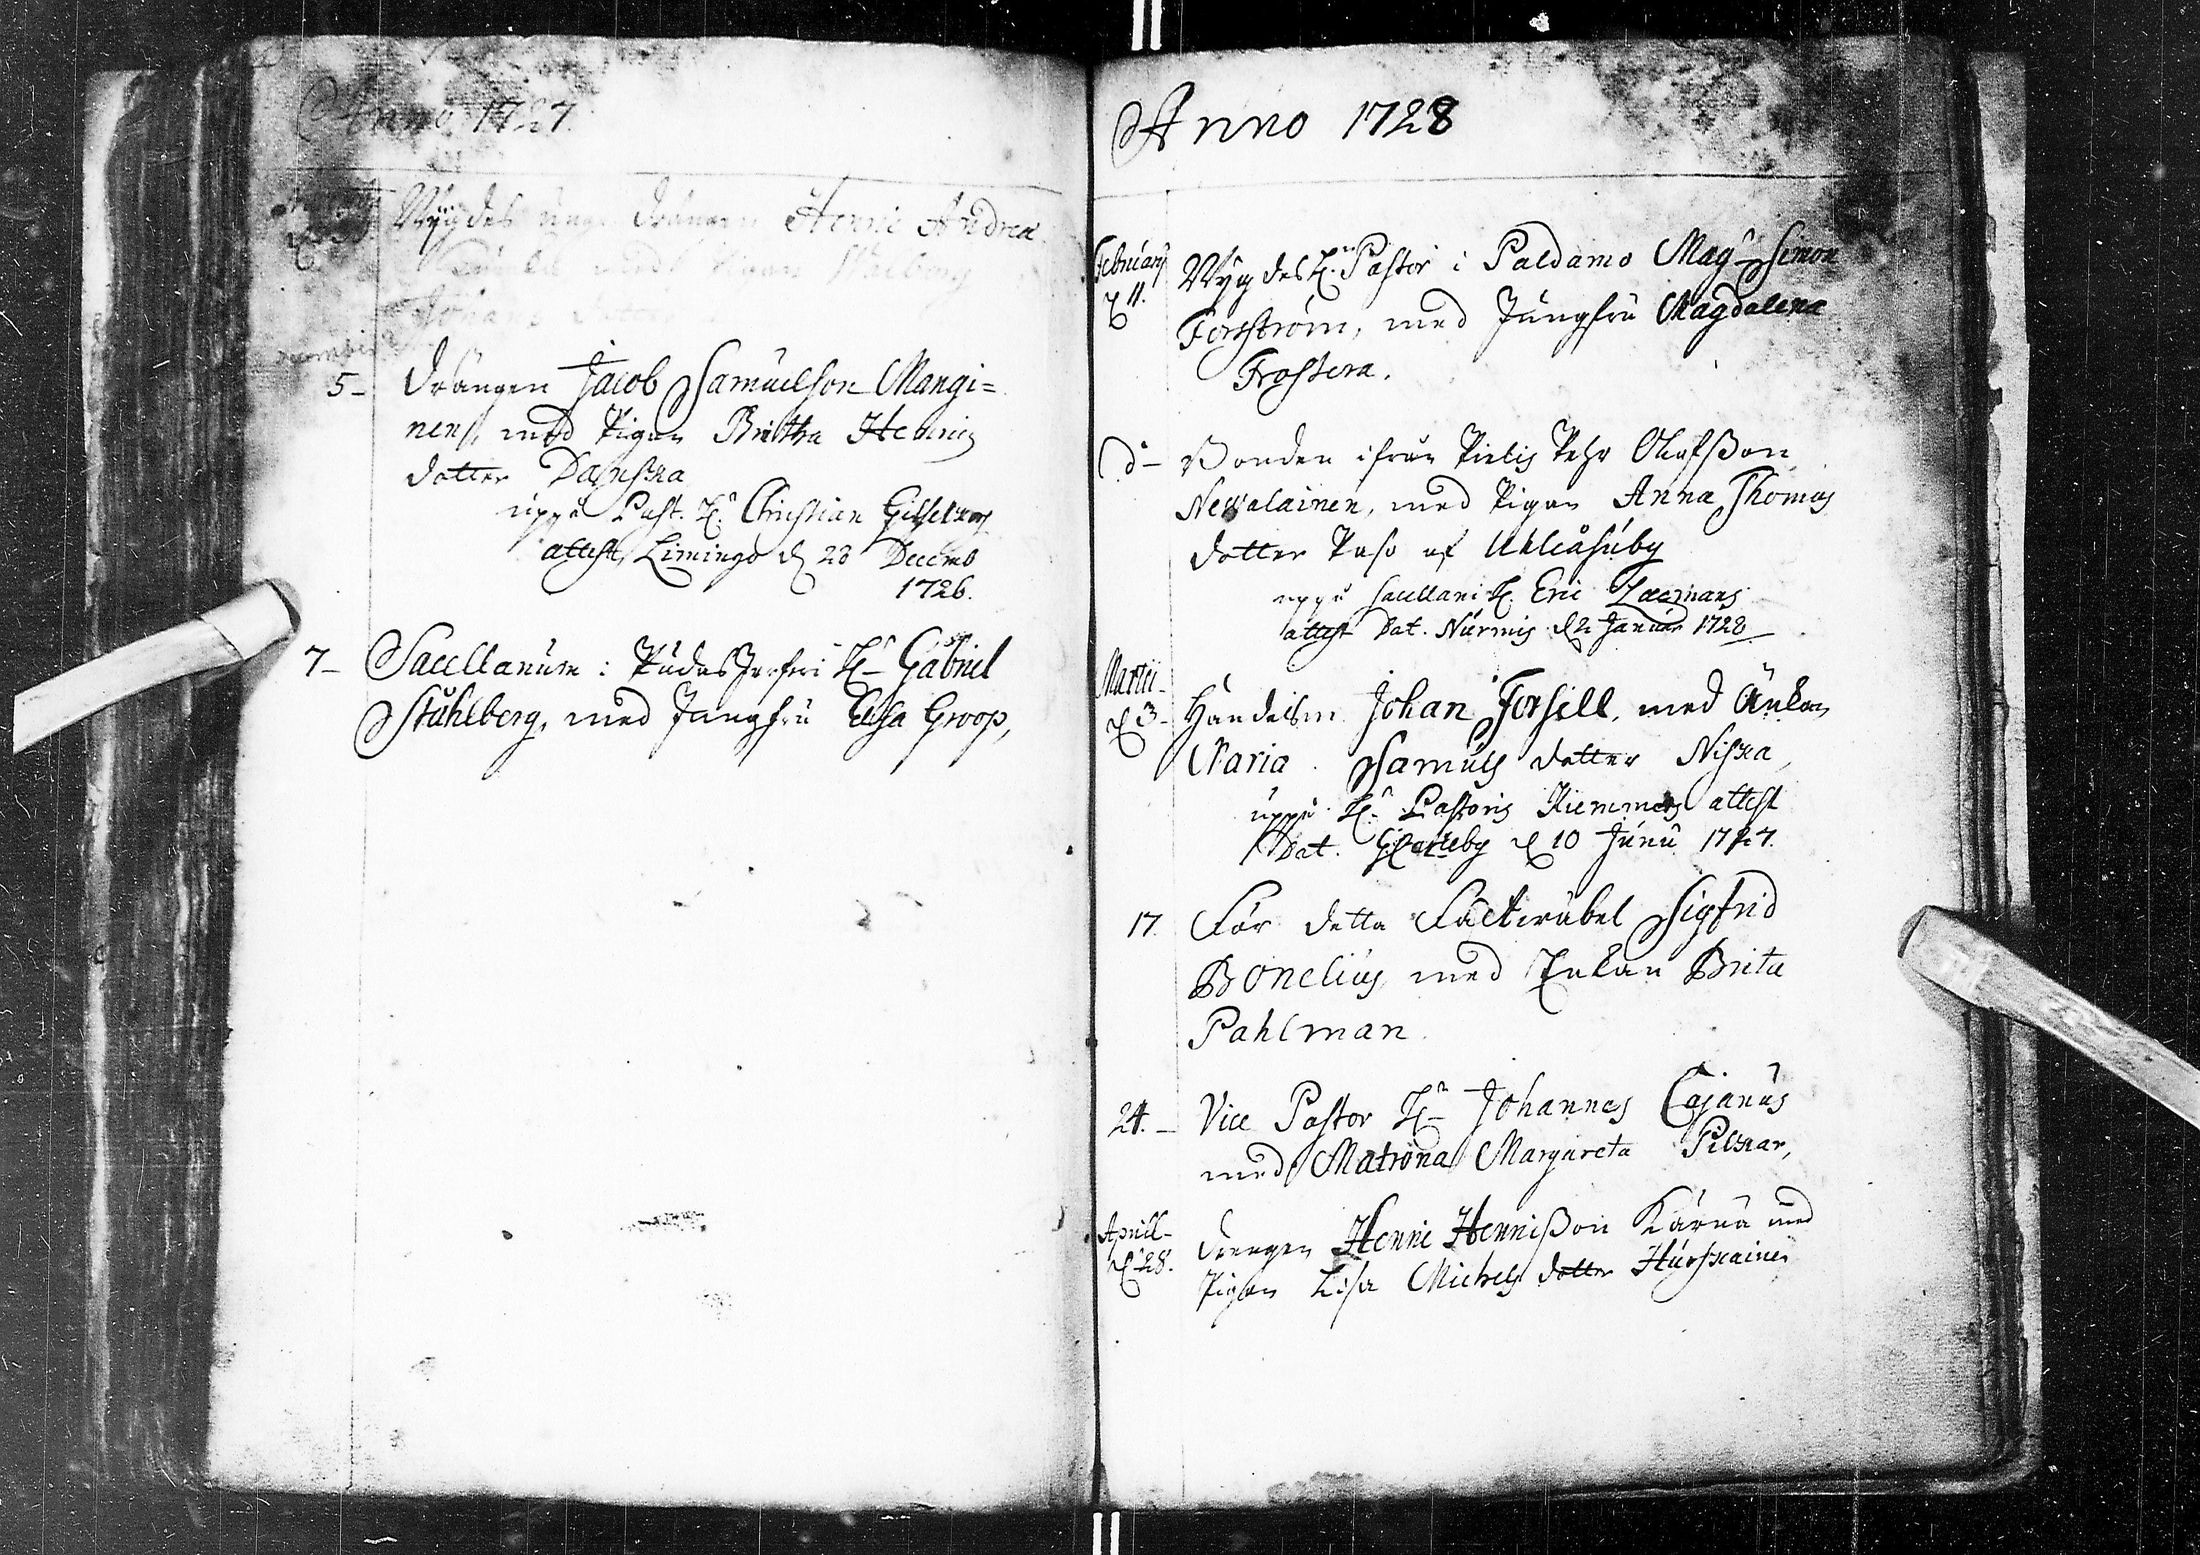 Anno 1727.
Wygdes unge drängen Henric Andrea
med Pigan Walborg
Johans dotter
5 - drängen Jacob Samuelson Mangi=
nen, med Pigan Britha Henrics
dotter Danska
uppå Past. H.r Christian
attest, Limingo d 28 Decemb
1726.
7 - Sacellanum i Pudasjerfwi H.r Gabriel
Ståhlberg, med Jungfru Elsa Groop,
Anno 1728
February
d 11. Wygdes H. Pastor i Paldamo Mag.r Simon
Forsström, med Jungfru Magdalena
Frostera.
d.o - Bonden ifrån Pielis Pehr Olofsson
Newalainen, med Pigan Anna Thomas
dotter Paso af Uhleåhúby
uppå Sacellani H. Eric Zacrimans
attest Dat. Nurmis d 2 Januar 1728
Martii
d 3 - Handelsm. Johan Forsell, med Änkan
Maria Samuels dotter Niska,
uppå H.r Pastoris Kiemmers attest
Dat. Gl. Carleby d 10 Junii 1727.
17. För detta Fältwäbel Sigfrid
Bonelius, med Enkan Brita
Pahlman.
24. - Vice Pastor H.r Johannes Cajanus
med Matrona Margareta Pilkar,
Aprill -
d 28. drengen Henric Henrisson Kärnä med
Pigan Lisa Michels dotter Hurskainen